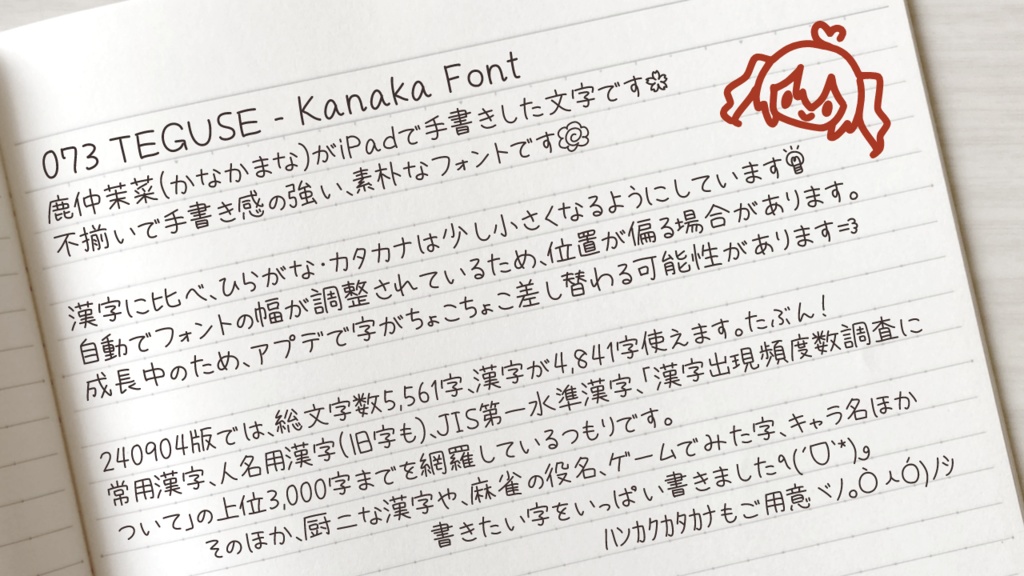 073 TEGUSE - Kanaka Font
鹿仲茉菜(かなかまな)がiPadで手書きした文字です
不揃いで手書き感の強い、素朴なフォントです
漢字に比べ、ひらがな・カタカナは少し小さくなるようにしています
自動でフォントの幅が調整されているため、位置が偏る場合があります。
成長中のため、アプデで字がちょこちょこ差し替わる可能性があります=3
240904版では、総文字数5,561字、漢字が4,841字使えます。たぶん！
常用漢字、人名用漢字(旧字も)、JIS第一水準漢字、「漢字出現頻度数調査に
ついて」の上位3,000字までを網羅しているつもりです。
そのほか、厨ニな漢字や、麻雀の役名、ゲームでみた字、キャラ名ほか
書きたい字をいっぱい書きました٩(ˊᗜˋ*)و
ﾊﾝｶｸｶﾀｶﾅもご用意ヾﾉ｡ÒㅅÓ)ﾉｼ